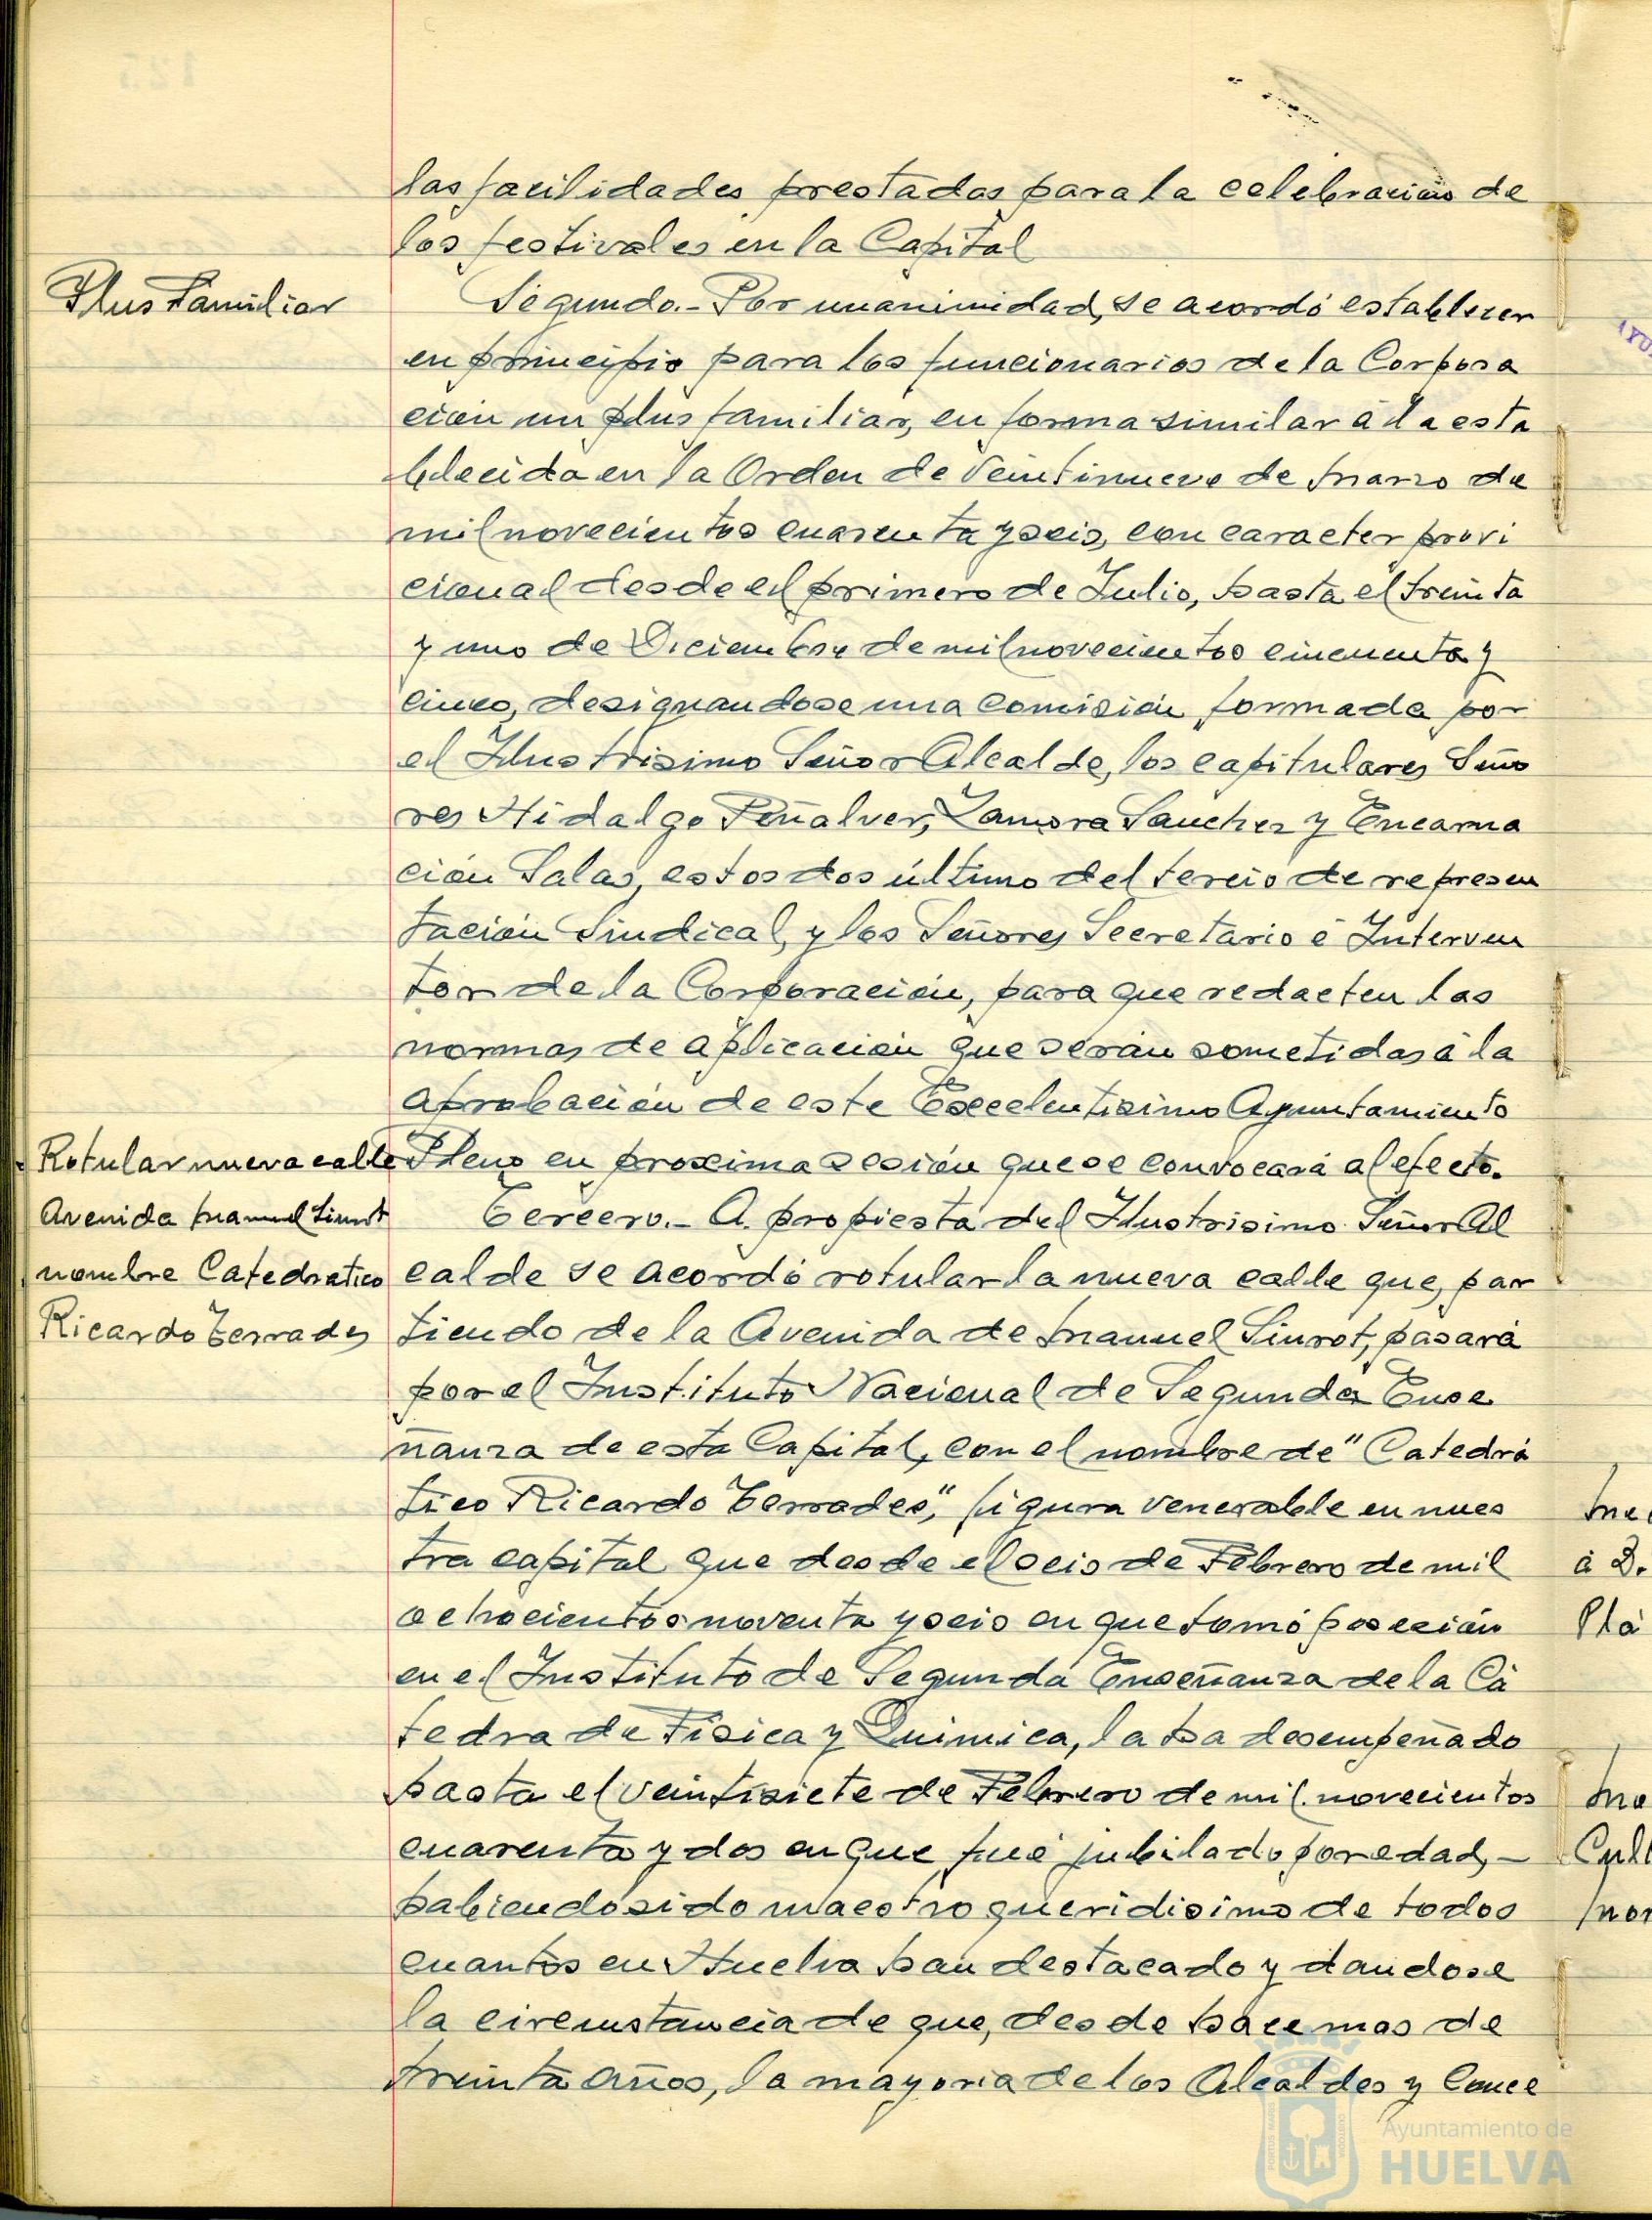 las facilidades prestadas para la celebración de
los festivales en la Capital
Plus Familiar
Segundo.- Por unanimidad, se acordó establecer
en principio para los funcionarios de la Corpora
ción un plus familiar, en forma similar á la esta
blecida en la Orden de Veintinueve de Marzo de
mil novecientos cuarenta y seis, con caracter provi
cional desde el primero de Julio, hasta el treinta
y uno de Diciembre de mil novecientos cincuenta y
cinco, designandose una Comisión formada por
el Ilustrisimo Señor Alcalde, los capitulares Seño
res Hidalgo Peñalver, Zamora Sanchez y Encarna
ción Salas, estos dos último del tercio de represen
tación Sindical, y los Señores Secretario é Interven
tor de la Corporación, para que redacten las
normas de aplicación que serán sometidas á la
aprobación de este Excelentisimo Ayuntamiento
Pleno en proxima sesión que se convocará al efecto.
Rotular nueva calle
Avenida Manuel Siurot
nombre Catedratico
Ricardo Terrades
Tercero.- A propiesta del Ilustrisimo Señor Al
calde se acordó rotular la nueva calle que, par
tiendo de la Avenida de Manuel Siurot, pasará
por el Instituto Nacional de Segunda Ense
ñanza de esta Capital, con el nombre de "Catedrá
tico Ricardo Terrades", figura venerable en nues
tra capital que desde el seis de Febrero de mil
ochocientos noventa y seis en que tomó posecián
en el Instituto de Segunda Enseñanza de la Cá
tedra de Fisica y Quimica, la ha desempeñado
hasta el veintisiete de Febrero de mil novecientos
cuarenta y dos en que fué jubilado por edad, -
habiendo sido maestro queridisimo de todos
cuantos en Huelva han destacado y dandose
la circunstancia de que, desde hace mas de
treinta años, la mayoria de los Alcaldes y Conce
á D.
Plá
Ayuntamiento de
HUELVA